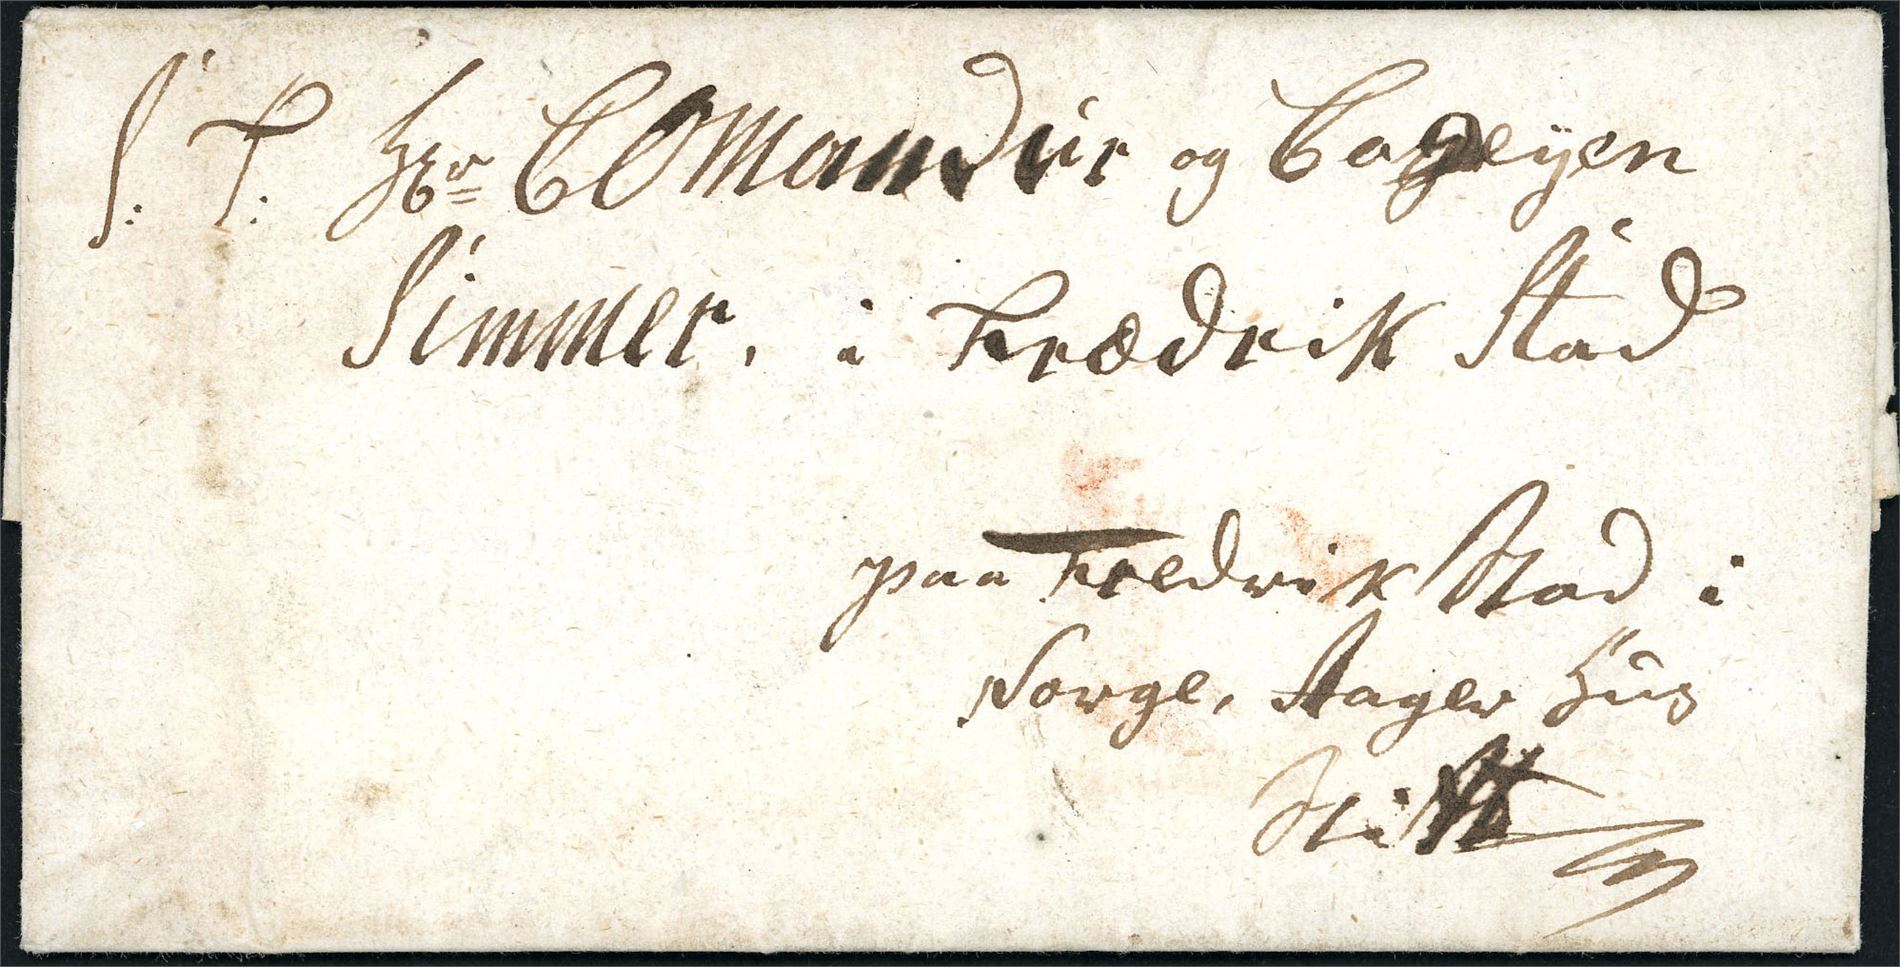 S: T: Hr Comandür og Capeÿen
Simmer, i Frædrik Stad
paa Fredrik Stad i
Norge, Aager Hüs
Stift